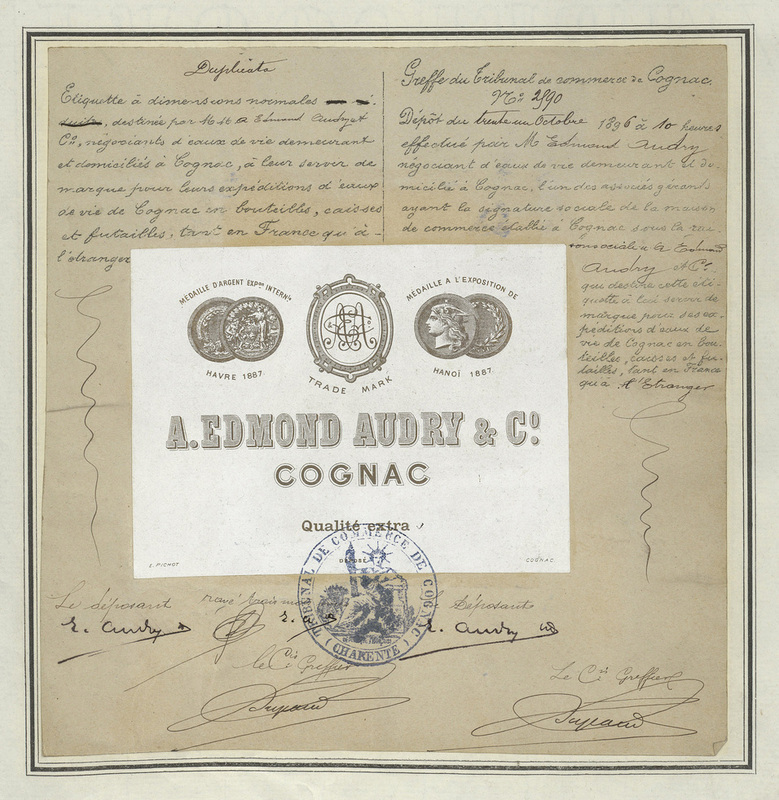 Duplicata
Etiquette à dimensions normales
destinée par M. A. Edmond Audry et
Co, négociants d'eaux de vie demeurant
et domiciliés à Cognac, à leur servir de
marque pour leurs expéditions d'eaux
de vie de Cognac en bouteilles, caisses
et futailles, tant en France qu'à
l'étranger
Greffe du Tribunal de commerce de Cognac.
No. 2590
Dépôt du trente un Octobre 1896 à 10 heures
effectué par M. Edmond Audry
négociant d'eaux de vie demeurant et do-
micilié à Cognac, l'un des associés gérants
ayant la signature sociale de la maison
de commerce établie à Cognac sous la rai-
son sociale A. Edmond
Audry et Co.
qui destine cette éti-
quette à leur servir de
marque pour ses ex-
péditions d'eaux de
vie de Cognac en bou-
teilles, caisses et fu-
tailles, tant en France
qu'à l'Etranger
MÉDAILLE D'ARGENT EXPON INTERNLE
HAVRE 1887.
TRADE MARK
MÉDAILLE A L'EXPOSITION DE
HANOÏ 1887.
A. EDMOND AUDRY & Co.
COGNAC
Qualité extra
DÉPOSÉ
E. PICHOT
COGNAC
TRIBUNAL DE COMMERCE DE COGNAC
(CHARENTE)
Le déposant
rayé trois mots
Déposant
E. Audry
E. Audry
le Cis Greffier
Le Cis Greffier